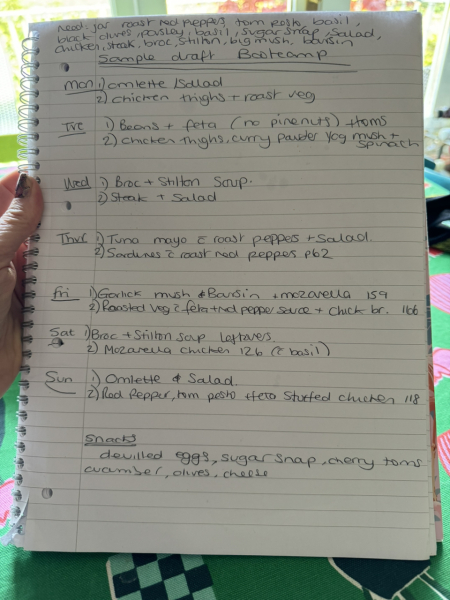 need: jar roast red peppers, tom pesto, basil,
black olives, parsley, basil, sugar snap, salad,
chicken, steak, broc, stilton, big mush, boursin
Sample draft Bootcamp
Mon 1) omlette / salad
2) chicken thighs + roast veg
Tue 1) Beans + feta (no pinenuts) + toms
2) chicken thighs, curry powder yog mush +
spinach
Wed 1) Broc + Stilton Soup.
2) Steak + Salad
Thur 1) Tuna mayo c roast peppers + Salad.
2) Sardines c roast red peppers P62
Fri 1) Garlick mush & Boursin + mozarella 159
2) Roasted veg c feta + red pepper sauce + chick br. 166
Sat 1) Broc + Stilton Soup leftovers.
2) Mozarella chicken 126 (c basil)
Sun 1) Omlette & Salad.
2) Red Pepper, tom pesto + feta Stuffed chicken 118
Snacks
devilled eggs, sugar snap, cherry toms
cucumber, olives, cheese